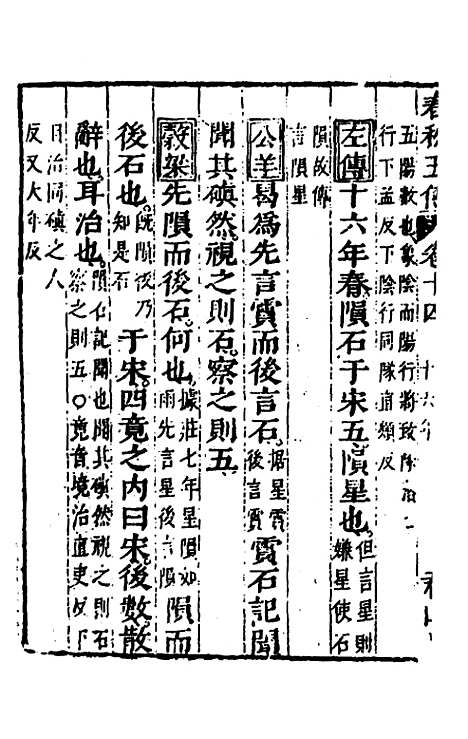 春秋五傳 卷十四 十六年
五陽數也象陰而陽行將致隊
行下孟反下陰行同隊直類反
左傳十六年春隕石于宋五隕星也但言星則嫌星使石
隕故傳
言隕星
公羊曷爲先言霣而後言石据星霣後言霣霣石記聞
聞其磌然視之則石察之則五
穀梁先隕而後石何也據莊七年星隕如雨先言星後言隕隕而
後石也既隕後乃知是石于宋四竟之內曰宋後數散
辭也耳治也隕石記聞也聞其磌然視之則石察之則五○竟音境治直吏反下
目治同磌之人
反又大年反